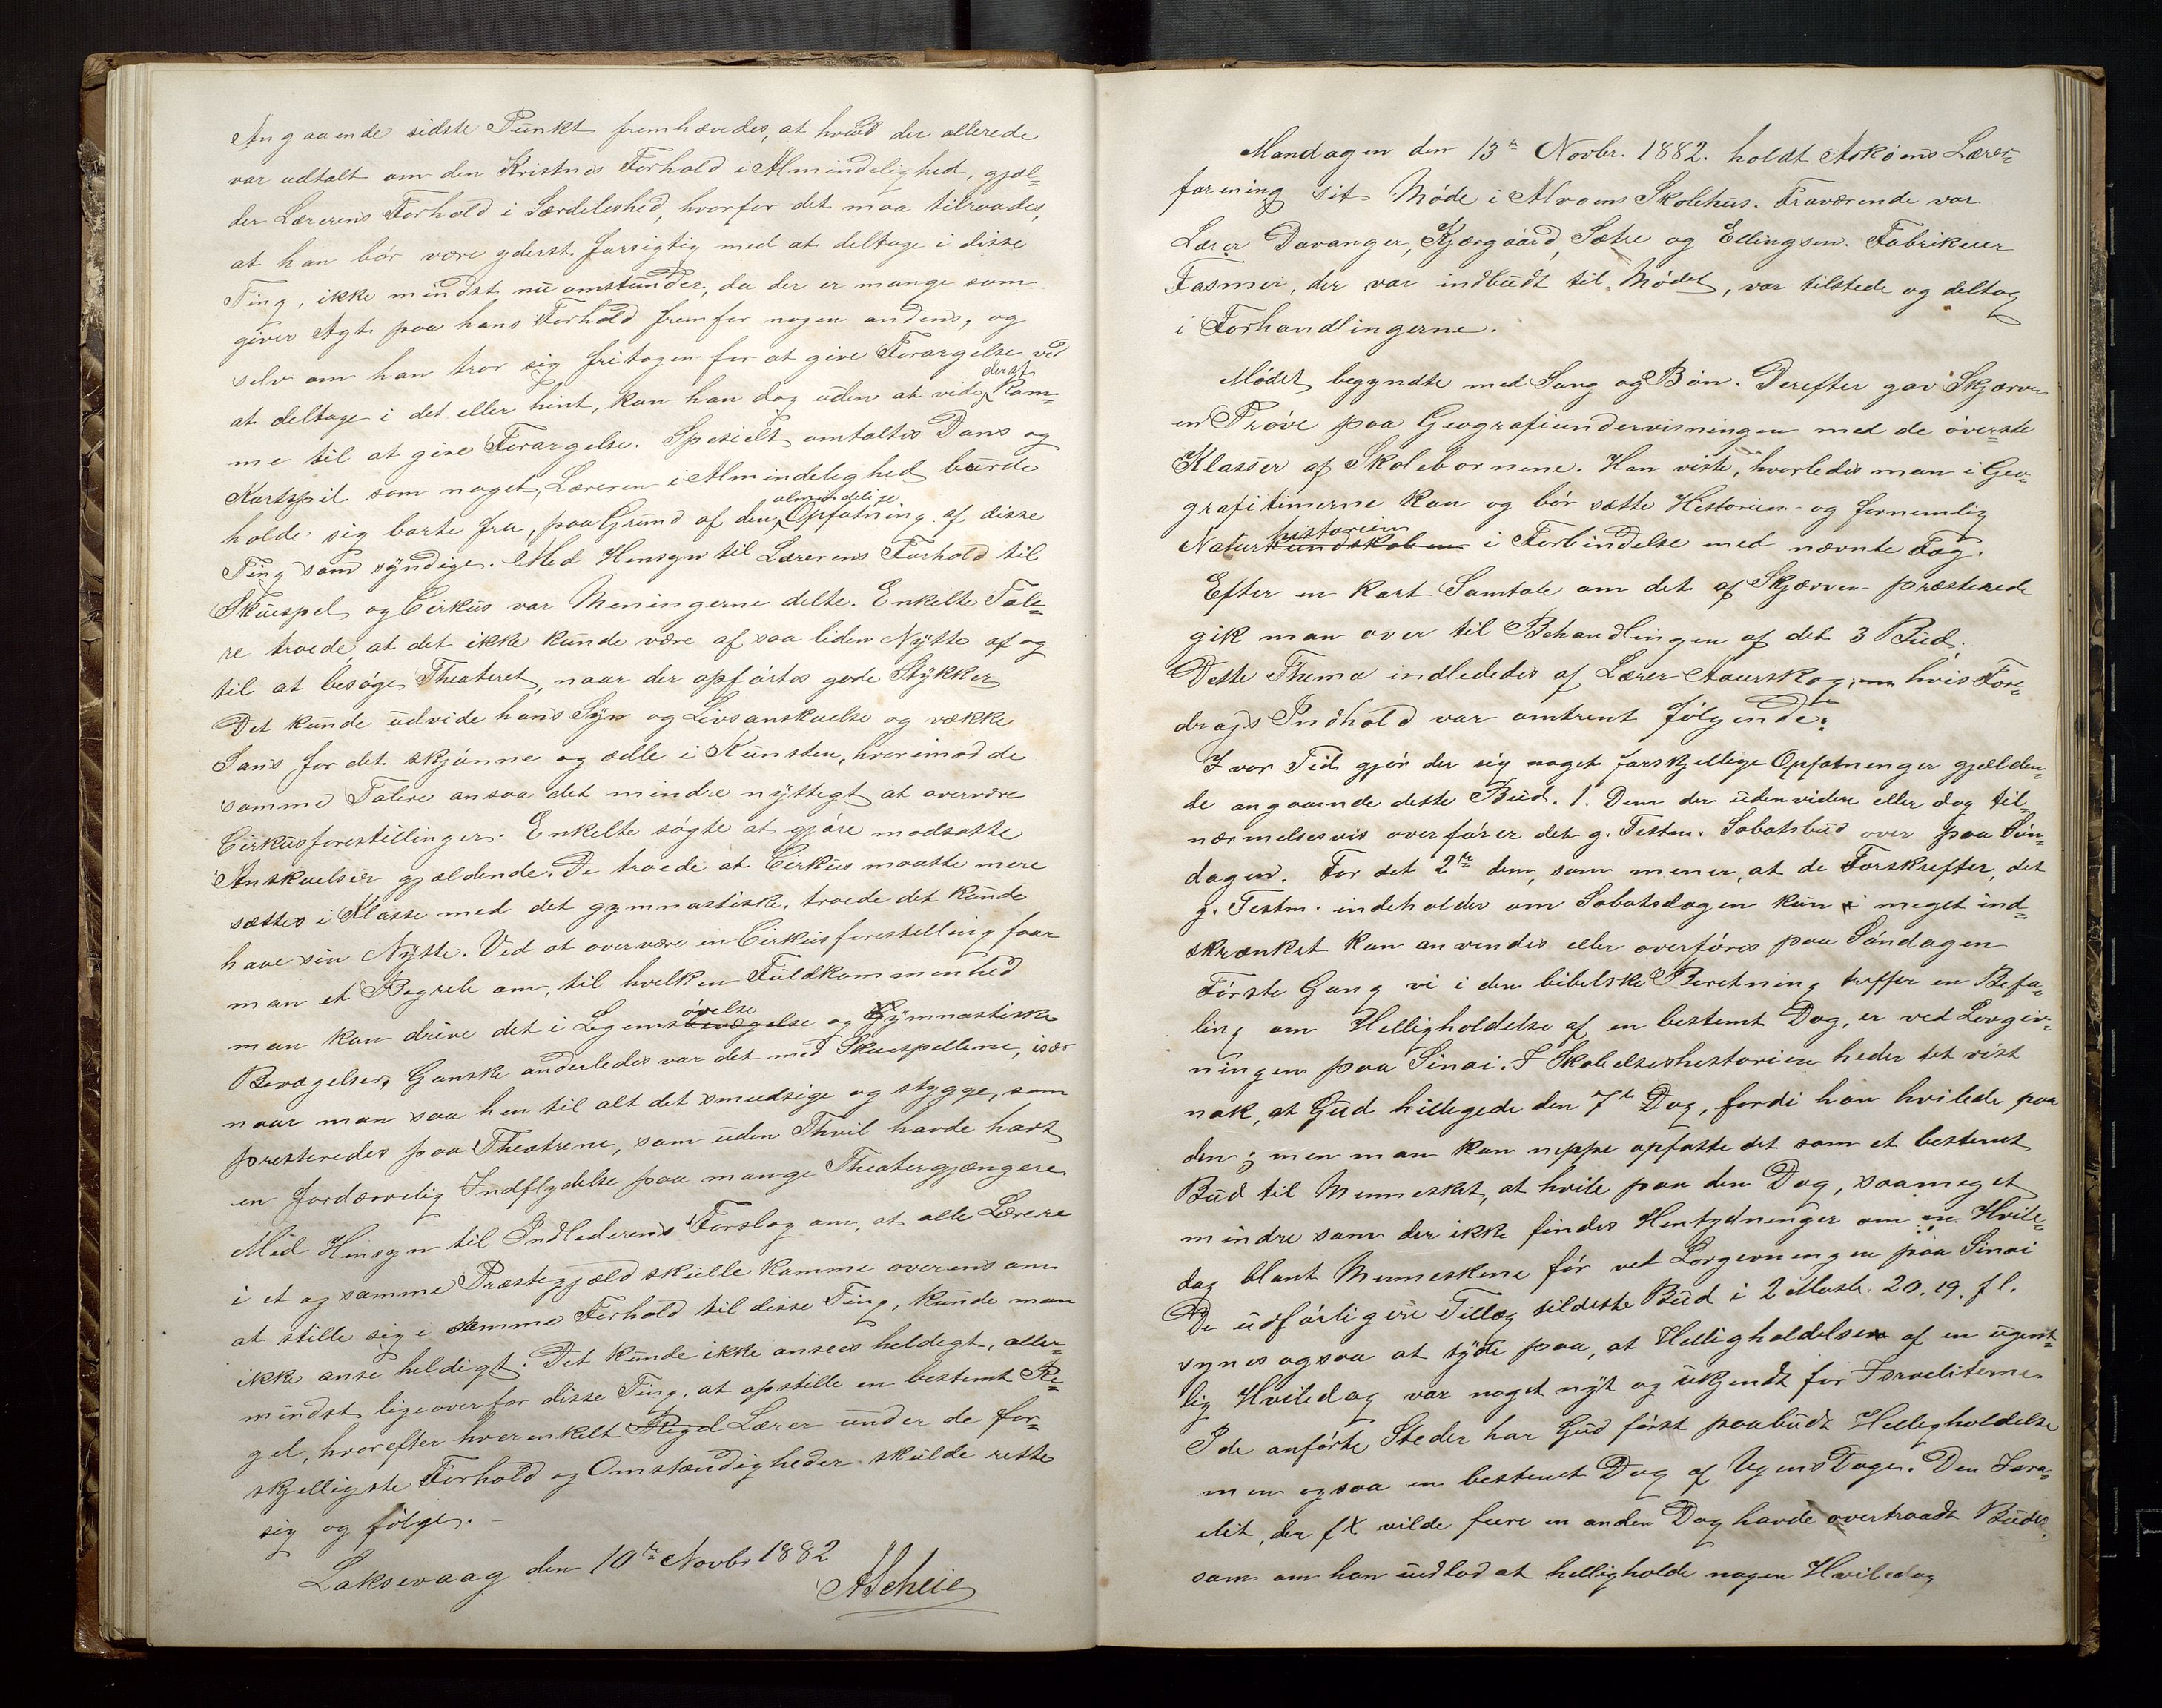 Angaaende sidste Punkt fremhævedes, at hvad der allerede
var udtalt om den Kristnes Forhold i Almindelighed, gjæl-
der Lærerens Forhold i Særdeleshed, hvorfor det maa tilraades,
at han bør være yderst forsigtig med at deltage i disse
Ting, ikke mindst nu omstunder, da der er mange som
giver Agt paa hans Forhold fremfor nogen andens, og
selv om han tror sig fritagen for at give Forargelse ved
at deltage i det eller hint, kan han dog uden at vide deraf kom-
me til at give Forargelse. Specielt omtaltes Dans og
Kortspil som noget, Læreren i Almindelighed burde
holde sig borte fra, paa Grund af den almindelige Opfatning af disse
Ting som syndige. Med Hensyn til Lærerens Forhold til
Skuespel og Cirkus var Meningerne delte. Enkelte Tale-
re troede, at det ikke kunde være af saa liden Nytte af og
til at besøge Theateret, naar der opførtes gode Stykker
Det kunde udvide hans Syn og Livsanskuelse og vække
Sans for det skjønne og ædle i Kunsten, hvorimod de
samme Talere ansaa det mindre nyttegt at overvære
Cirkusforestillinger. Enkelte søgte at gjøre modsatte
Anskuelser gjældende. De troede at Cirkus maatte mere
sættes i Klasse med det gymnastiske, troede det kunde
have sin Nytte. Ved at overvære en Cirkusforestelling faar
man et Begreb om, til hvilken Fuldkommenhed
man kan drive det i Legemsbevægelse øvelse og Gymnastiske
Bevægelser. Ganske anderledes var det med Skuespellene, især
naar man saa hen til alt det smudsige og stygge, som
presteredes paa Theatrene, som uden Thvil havde havt
en fordærvelig Indflydelse paa mange Theatergjængere
Med Hensyn til Indlederens Forslag om, at alle Lærere
i et og samme Præstegjæld skulle komme overens om
at stille sig i samme Forhold til disse Ting, kunde man
ikke anse heldigt. Det kunde ikke ansees heldegt, aller-
mindst ligeoverfor disse Ting, at opstille en bestemt Re-
gel, hvorefter hver enkelt Regel Lærer under de for-
skjelligste Forhold og Omstændigheder skulde rette
sig og følge.
Laksevaag den 10de Novbr 1882
AScheie
Mandagen den 13de Novbr. 1882. holdt Askøens Lærer-
forening sit Møde i Alvøens Skolehus. Fraværende var
Lærer Davanger, Kjærgaard, Sætre og Ellingsen. Fabrikeier
Fasmer, der var indbudt til Mødet, var tilstede og deltog
i Forhandlingerne.
Mødet begyndte med Sang og Bøn. Derefter gav Skjærven
en Prøve paa Geografiundervisningen med de øverste
Klasser af Skolebørnene. Han viste, hvorledes man i Geo-
grafitimerne kan og bør sætte Historien- og fornemlig
Naturkundskaben historien i Forbindelse med nævnte Fag.
Efter en kort Samtale om det af Skjærven præsterede
gik man over til Behandlingen af det 3 Bud.
Dette Thema indlededes af Lærer Aaurskog, hvis Fore-
drags Indhold var omtrent følgende:
I vor Tid gjør der sig noget forskjellige Opfatninger gjælden-
de angaaende dette Bud. 1. Dem der uden videre eller dog til-
nærmelsesvis overfører det g. Testm. Sabatsbud over paa Søn-
dagen. For det 2de dem, som mener, at de Forskrefter, det
g. Testm. indeholder om Sabatsdagen kun i meget ind-
skrænket kan anvendes eller overføres paa Søndagen
Første Gang vi i den bibelske Beretning treffer en Befa-
ling om Helligholdelse af en bestemt Dag, er ved Lovgiv-
ningen paa Sinai. I Skabelseshistorien heder det vist
nok, at Gud hilligede den 7de Dag, fordi han hvilede paa
den; men man kan neppe opfatte det som et bestemt
Bud til Mennesket, at hvile paa den Dag, saameget
mindre som der ikke findes Hentydninger om en Hvile-
dag blant Menneskene før ved Lovgevningen paa Sinai
De udførligere Tillæg tildette Bud i 2 Moseb. 20. 19. fl.
synes ogsaa at tyde paa, at Helligholdelsen af en ugent-
lig Hviledag var noget nyt og ukjendt for Israeliterne
I de anførte Steder har Gud først paabudt Helligholdelse
men ogsaa en bestemt Dag af Ugens Dage. Den Isra-
elit, der fx vilde feire en anden Dag havde overtraadt Budet,
som om han undlod at helligholde nogen Hviledag